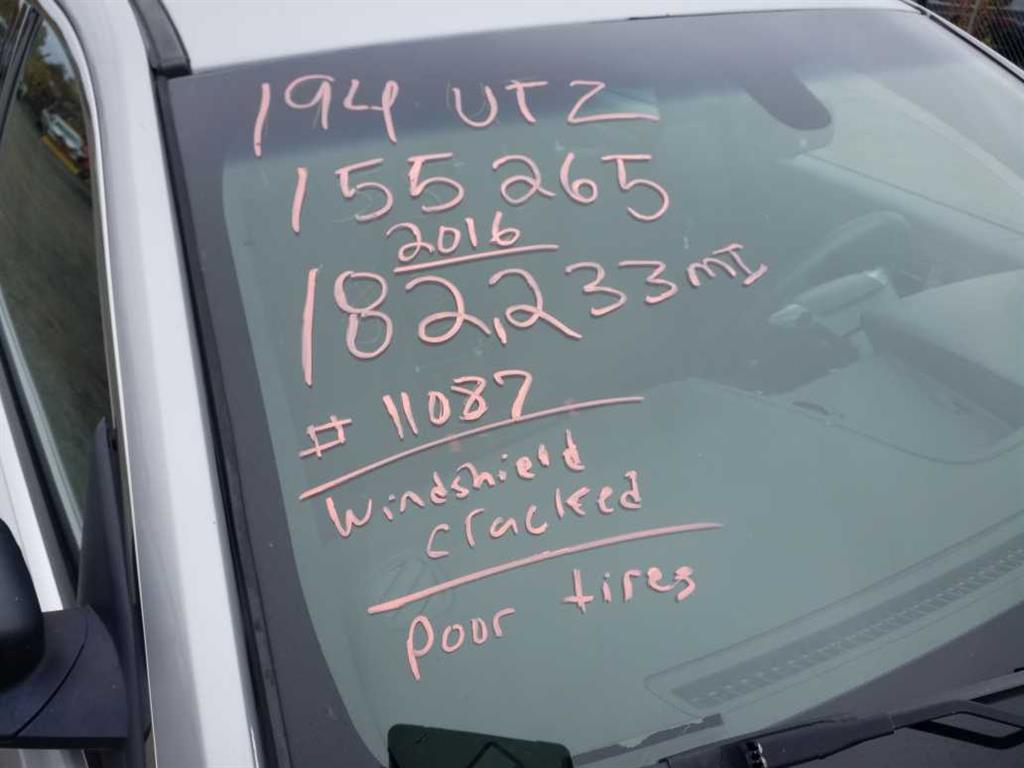 194 UTZ
155265
2016
182,233 MI
# 11087
Windshield
cracked
poor tires